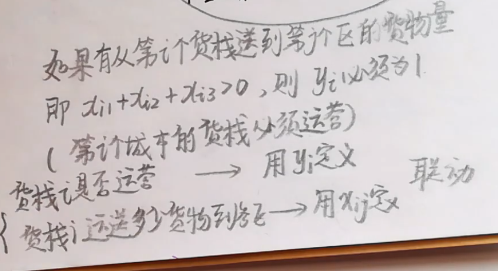 如果有从第i个货栈送到第j个区的货物量
即 xi1+xi2+xi3>0,则 yi必须为1
(第i个城市的货栈必须运营)
货栈i是否运营 → 用yi定义 联动
货栈i运送多少货物到j区→用xij定义